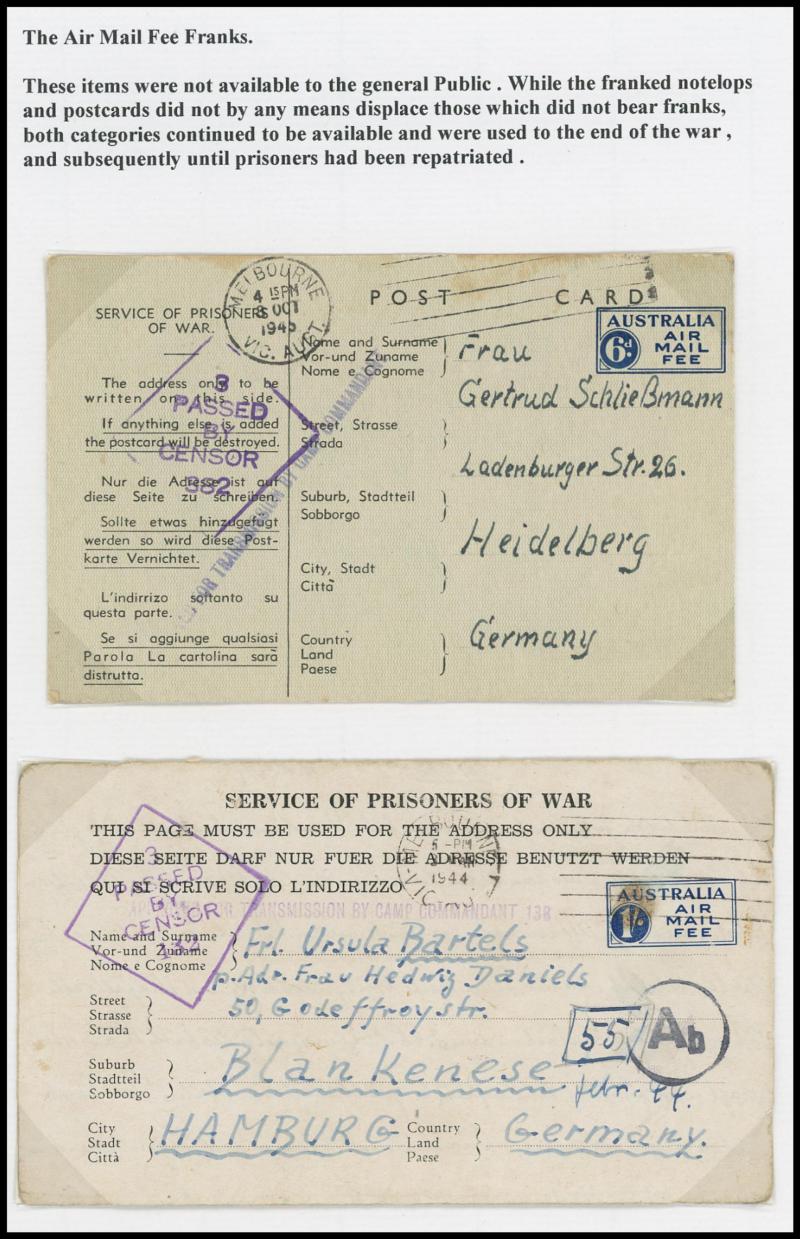 The Air Mail Fee Franks.
These items were not available to the general Public . While the franked notelops
and postcards did not by any means displace those which did not bear franks,
both categories continued to be available and were used to the end of the war ,
and subsequently until prisoners had been repatriated .
MELBOURNE
4 15PM
OCT
1945
VIC. AUST.
POST CARD
SERVICE OF PRISONERS
OF WAR.
AUSTRALIA
6d
AIR
MAIL
FEE
The address only to be
written on this side.
If anything else is added
the postcard will be destroyed.
Nur die Adresse ist auf
diese Seite zu schreiben.
Sollte etwas hinzugefugt
werden so wird diese Post-
karte Vernichtet.
L'indirrizo soltanto su
questa parte.
Se si aggiunge qualsiasi
Parola La cartolina sarà
distrutta.
3
PASSED
BY
CENSOR
552
FOR TRANSMISSION BY CAMP COMMANDANT
Name and Surname
Vor-und Zuname
Nome e Cognome
Frau
Gertrud Schließmann
Street, Strasse
Strada
Ladenburger Str. 26.
Suburb, Stadtteil
Sobborgo
Heidelberg
City, Stadt
Città
Country
Land
Paese
Germany
SERVICE OF PRISONERS OF WAR
THIS PAGE MUST BE USED FOR THE ADDRESS ONLY
DIESE SEITE DARF NUR FUER DIE ADRESSE BENUTZT WERDEN
QUI SI SCRIVE SOLO L'INDIRIZZO
5-PM
1944
VIC
AUSTRALIA
1/-
AIR
MAIL
FEE
3
PASSED
BY
CENSOR
FOR TRANSMISSION BY CAMP COMMANDANT 13B
Name and Surname
Vor-und Zuname
Nome e Cognome
Frl. Ursula Bartels
p. Adr. Frau Hedwig Daniels
Street
Strasse
Strada
50, Godeffroystr.
55
Ab
Suburb
Stadtteil
Sobborgo
Blankenese
febr. 44.
City
Stadt
Città
HAMBURG
Country
Land
Paese
Germany.